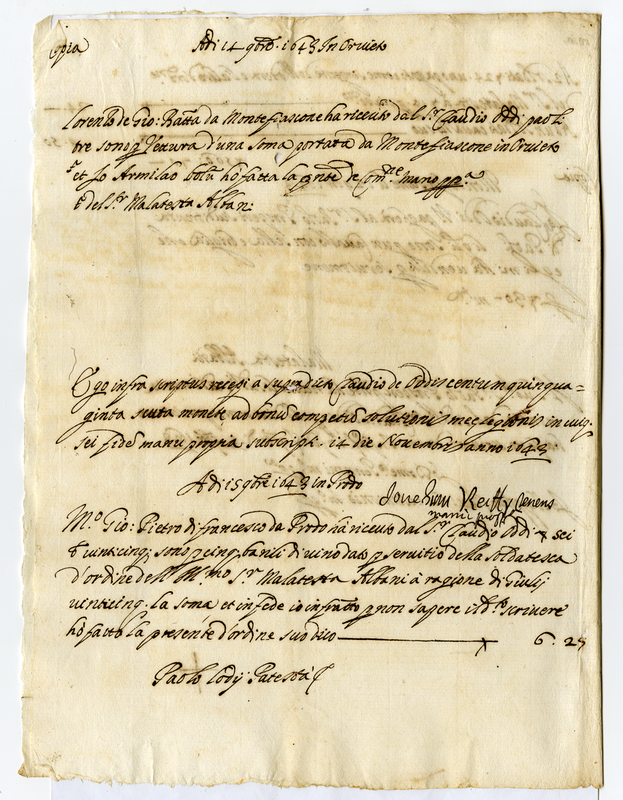 Copia
Adi 14 9bre. 1643 In Orvieto
Lorenzo de Gio: Batta da Montefiascone ha riceuto dal Sr. Claudio Oddi paoli
tre sono p Vettura d'una soma portata da Montefiascone in Orvieto
et Io Armilao ho fatta la de mano ppa
del Sr. Malatesta Alban:
Ego infra scriptus recepi a supradicto Claudio de Oddis centum quinqua=
ginta scuta monete ad bonũ computũ solutionis mee in cuiq.
rei fidẽ manu propria subscript. 14 die Novembris anno 1643
Adi 15 9bre 1643 in Prodo
manu
M.o Gio: Pietro di francesco da Prodo ha riceuto dal Sr. Claudio Oddi sei
e vinticinq; sono p cinq; barili di vino dato p servitio della soldatesca
d'ordine dell Ill.mo Sr. Malatesta Albani à ragione di Giulij
venticinq. la soma et in fede io infratto p non sapere il do. scrivere
hò fatto la presente d'ordine suo dico 6. 25
Paolo Potestà